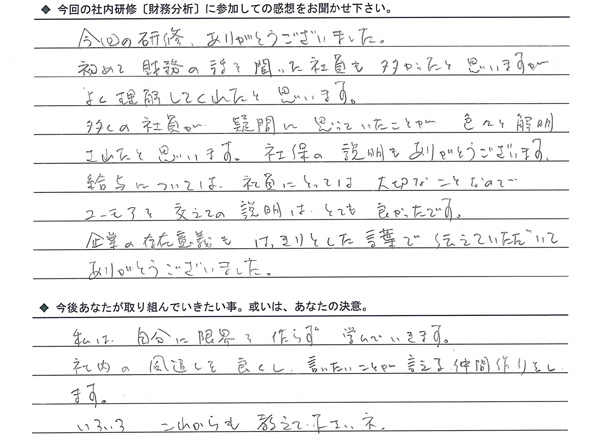 ◆ 今回の社内研修〔財務分析〕に参加しての感想をお聞かせ下さい。
今回の研修、ありがとうございました。
初めて財務の話を聞いた社員も多かったと思いますが
よく理解してくれたと思います。
多くの社員が 疑問に思っていたことが 色々と解明
されたと思います。社保の説明もありがとうございます。
給与については、社員にとっては 大切なことなので
ユーモアを交えての説明は、とても良かったです。
企業の存在意義も はっきりとした言葉で伝えていただいて
ありがとうございました。
◆ 今後あなたが取り組んでいきたい事。或いは、あなたの決意。
私は 自分に限界を作らず 学んでいきます。
社内の風通しを良くし、言いたいことが言える仲間作りをし
ます。
いろいろ これからも 教えて下さいネ。